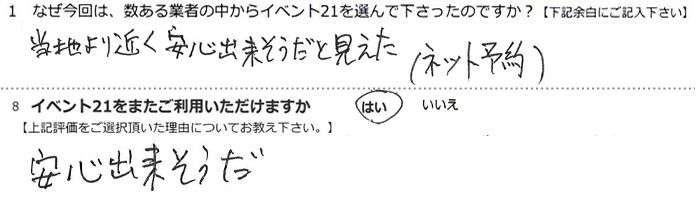 1 なぜ今回は、数ある業者の中からイベント21を選んで下さったのですか？【下記余白にご記入下さい】
当地より近く安心出来そうだと見えた(ネット予約)
8 イベント21をまたご利用いただけますか はい いいえ
【上記評価をご選択頂いた理由についてお教え下さい。】
安心出来そうだ